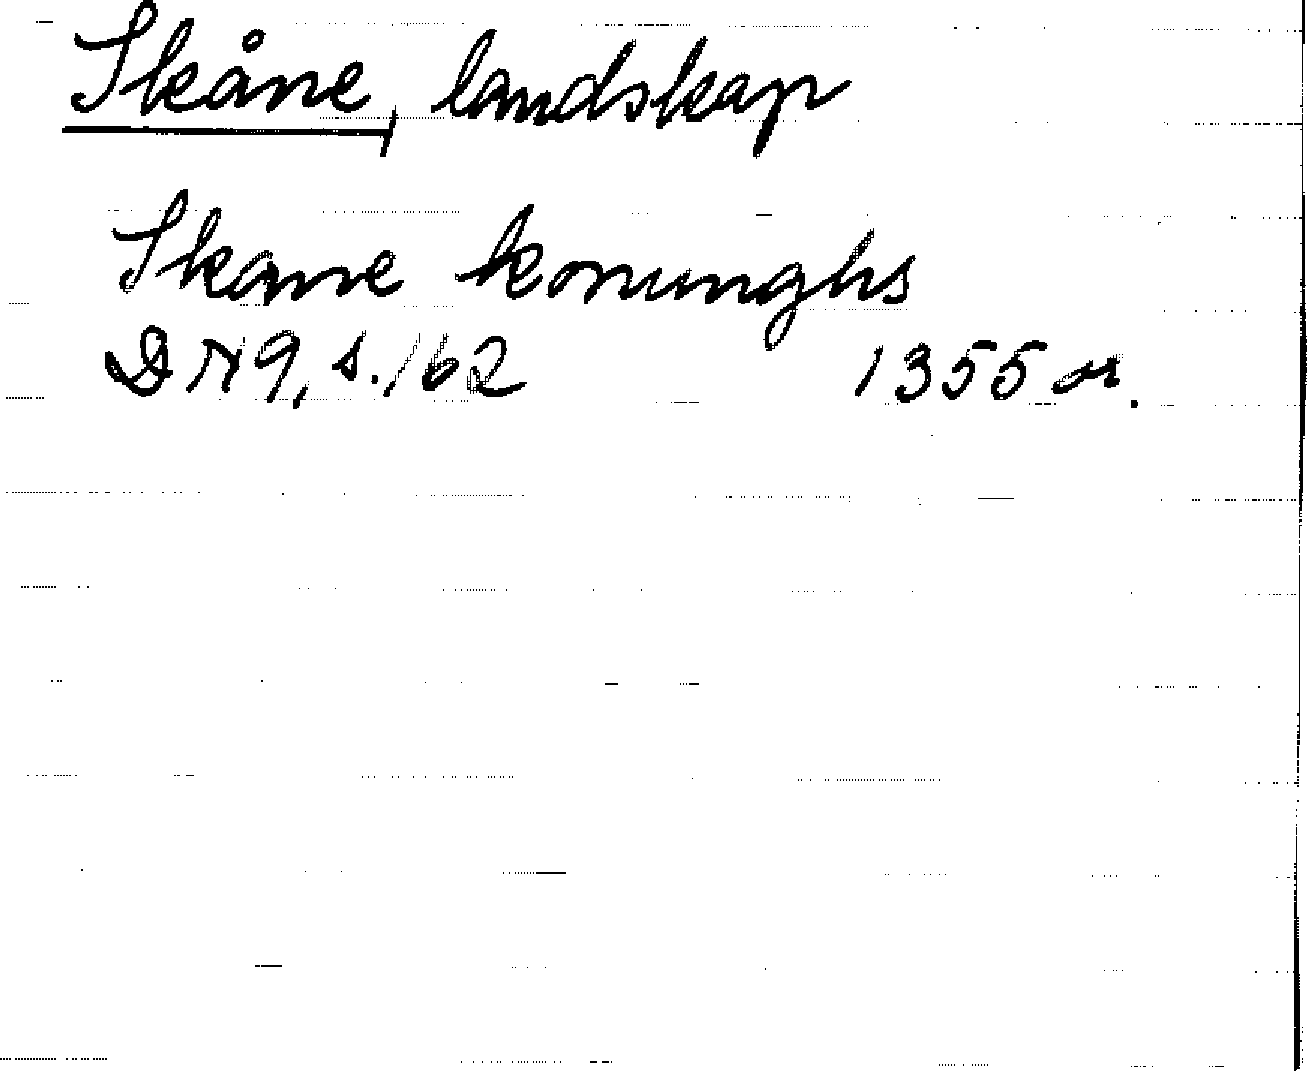 Skåne, landskap
Skane konunghs
DN9, s. 162 1355 or.